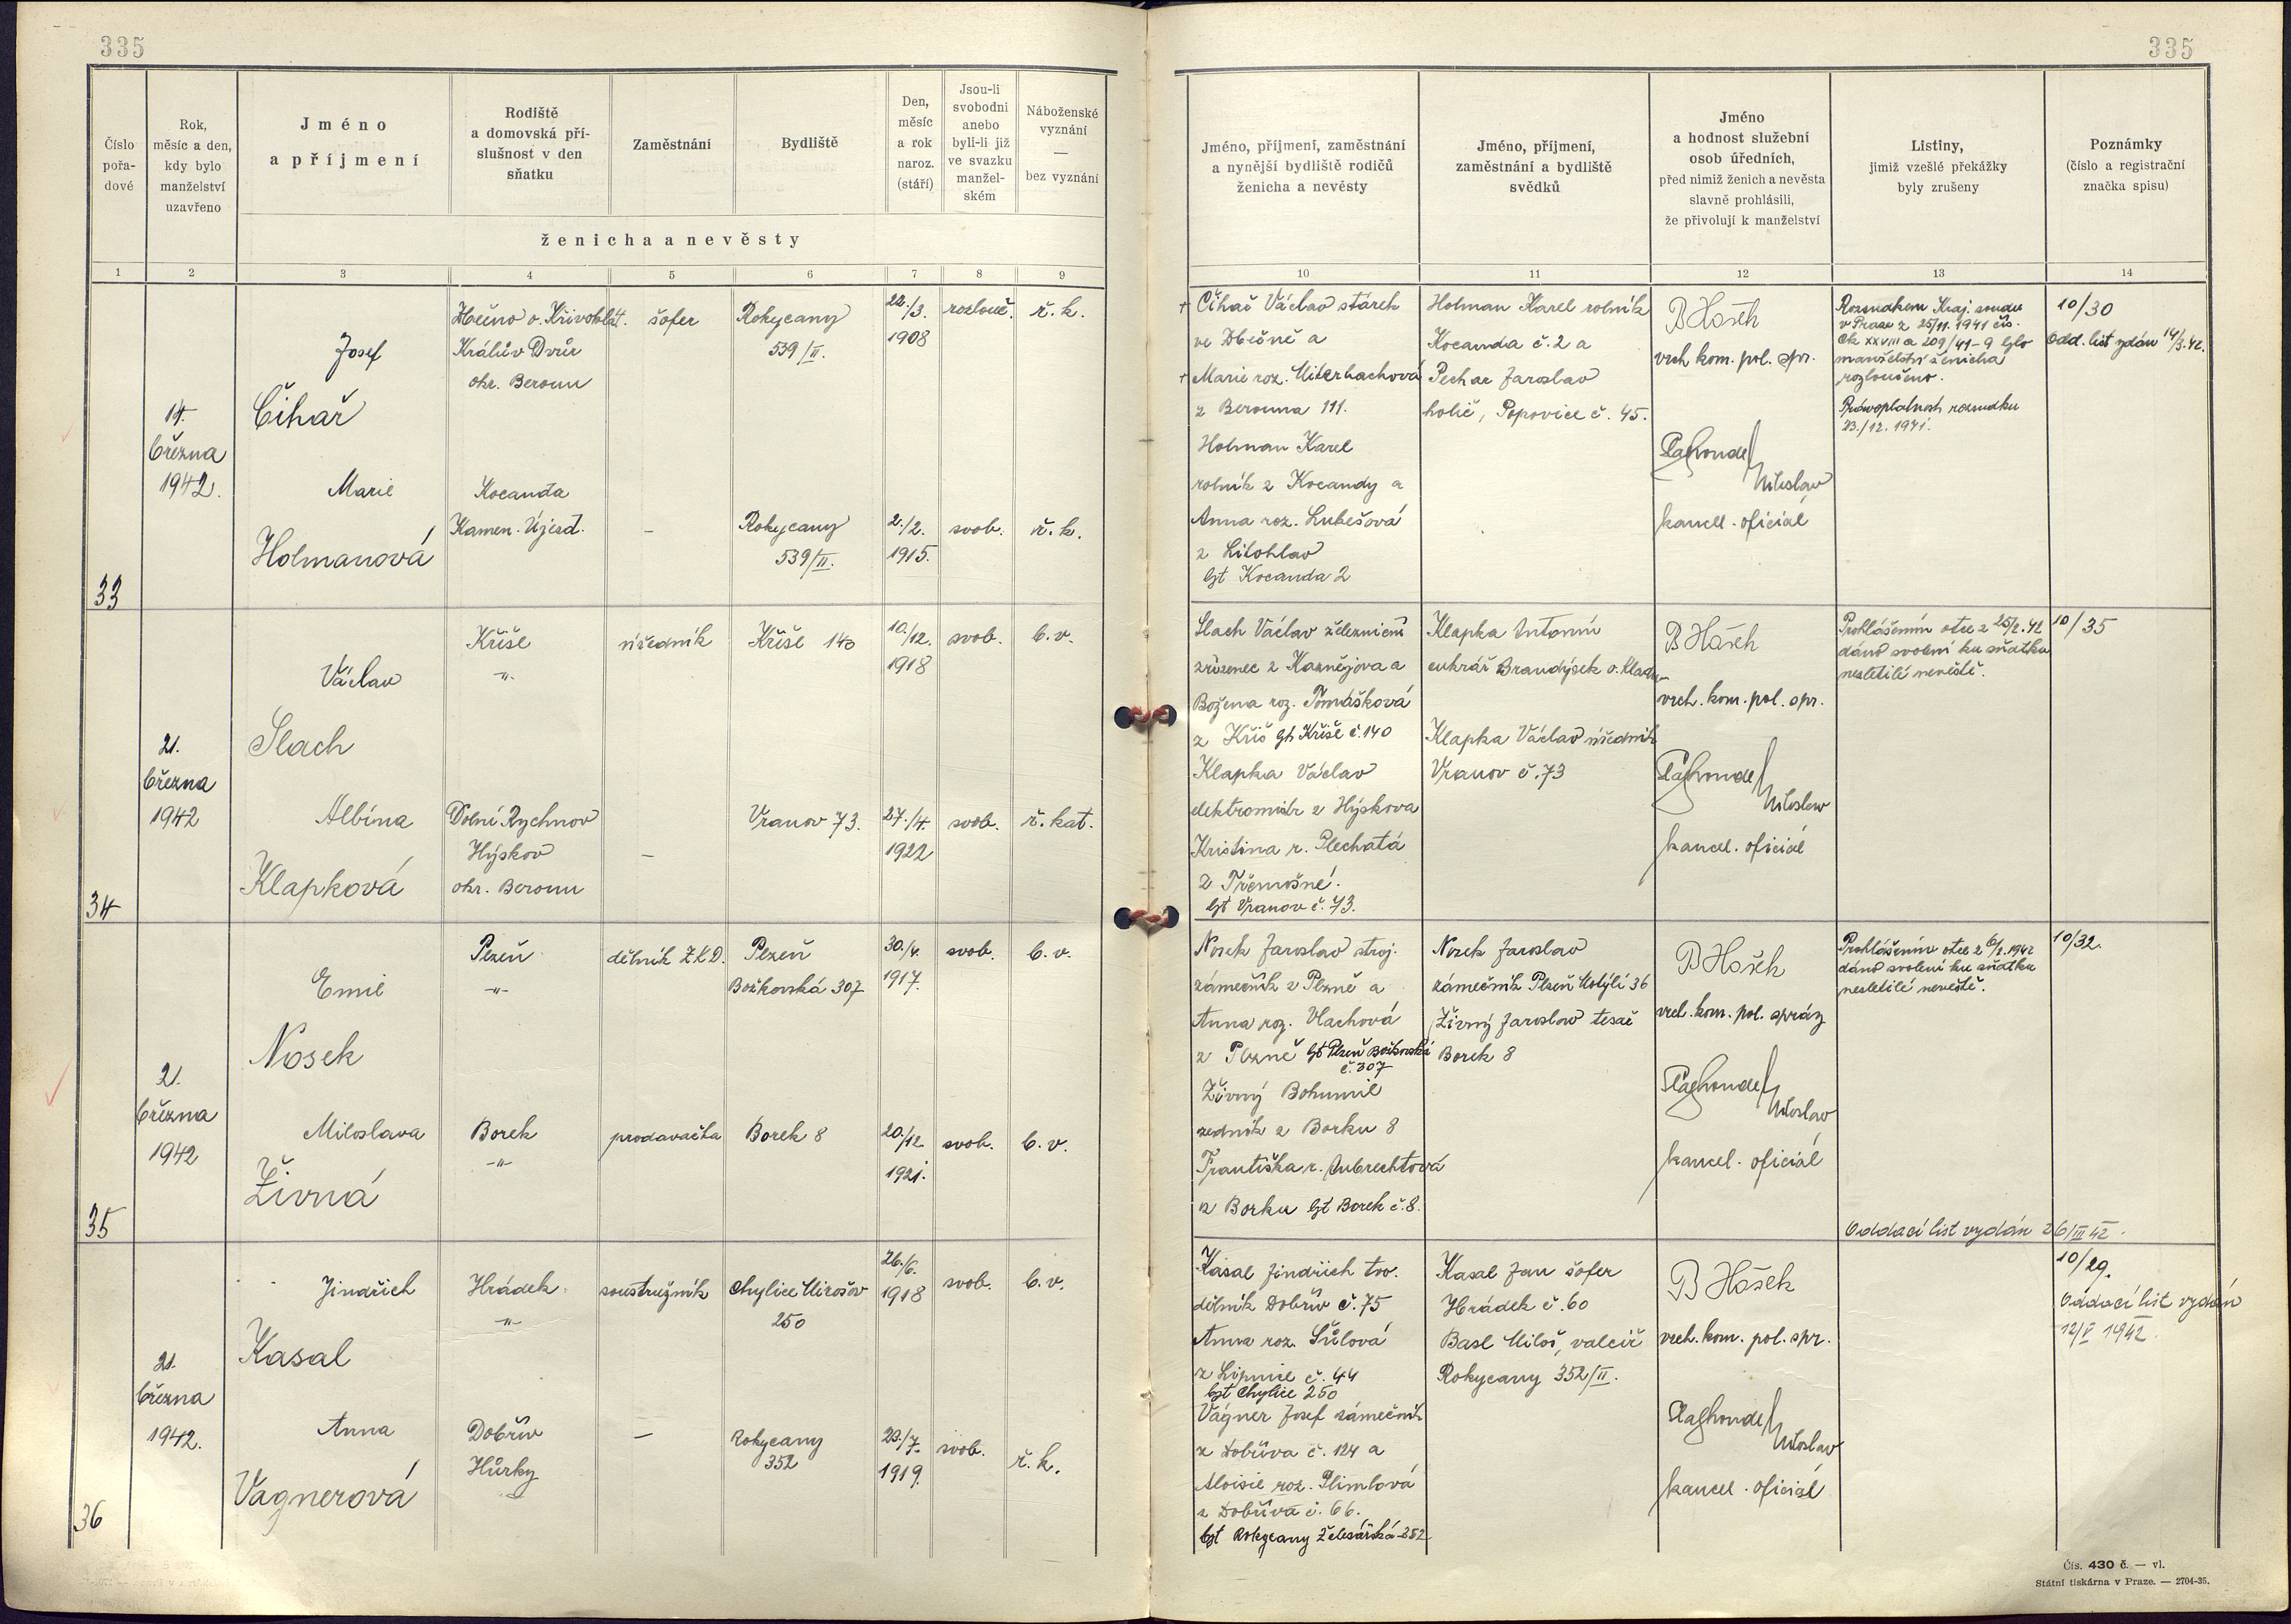 335
335
Číslo pořa-dové
Rok, měsíc a den, kdy bylo manželství uzavřeno
Jméno a příjmení
Rodiště a domovská pří-slušnost v den sňatku
Zaměstnání
Bydliště
Den, měsíc a rok naroz. (stáří)
Jsou-li svobodni anebo byli-li již ve svazku manžel-ském
Náboženské vyznání — bez vyznání
ženicha a nevěsty
Jméno, příjmení, zaměstnání a nynější bydliště rodičů ženicha a nevěsty
Jméno, příjmení, zaměstnání a bydliště svědků
Jméno a hodnost služební osob úředních, před nimiž ženich a nevěsta slavně prohlásili, že přivolují k manželství
Listiny, jimiž vzešlé překážky byly zrušeny
Poznámky (číslo a registrační značka spisu)
1 2 3 4 5 6 7 8 9 10 11 12 13 14
33
14.
března
1942.
Josef
Čihař
Králův Dvůr
okr. Beroun
šofer
Rokycany
539/II.
22./3.
1908
rozlouč.
ř. k.
Marie
Holmanová
Kocanda
Kamen. Újezd.
–
Rokycany
539/II.
2./2.
1915.
svob.
ř. k.
+ Čihař Václav stárek
ve Zbečně a
+ Marie roz. Uiterbachová
z Berouna 111.
Holman Karel
rolník z Kocandy a
Anna roz. Lubešová
z Litohlav
byt Kocanda 2
Holman Karel rolník
Kocanda č. 2 a
Pechar Jaroslav
holič, Popovice č. 45.
B Hošek
vrch. kom. pol. spr.
Miloslav
kancel. oficiál
Rozsudkem Kraj. soudu
v Praze z 25/11. 1941 čís.
Ck XXVIII a 209/41-9 bylo
manželství ženicha
rozloučeno.
Právoplatnost rozsudku
23./12. 1941.
10/30
Odd. list vydán 14/3. 42.
34
21.
března
1942
Václav
Slach
Kříše
-"-
úředník
Kříše 140
10./12.
1918
svob.
b. v.
Albína
Klapková
Dolní Rychnov
Hýskov
okr. Beroun
–
Vranov 73.
27./4.
1922
svob.
ř. kat.
Slach Václav železniční
zřízenec z Kaznějova a
Božena roz. Tomášková
z Kříš byt Kříše č. 140
Klapka Václav
elektromistr z Hýskova
Kristina r. Plechatá
z Třemošné.
byt Vranov č. 73.
Klapka Antonín
cukrář Brandýsek o. Kladno
Klapka Václav úředník
Vranov č. 73
B Hošek
vrch. kom. pol. spr.
Miloslav
kancel. oficiál
Prohlášením otce z 25/2. 42
dáno svolení ku sňatku
nezletilé nevěstě.
10/35
35
21.
března
1942
Emil
Nosek
Plzeň
-"-
dělník Z.K.D.
Plzeň
Božkovská 307
30./4.
1917.
svob.
b. v.
Miloslava
Živná
Borek
-"-
prodavačka
Borek 8
20./12.
1921.
svob.
b. v.
Nosek Jaroslav stroj.
zámečník z Plzně a
Anna roz. Vlachová
z Plzně byt Plzeň Božkovská
č. 307
Živný Bohumil
zedník z Borku 8
Františka r. Aubrechtová
z Borku byt Borek č. 8.
Nosek Jaroslav
zámečník Plzeň Motýlí 36
Živný Jaroslav tesař
Borek 8
B Hošek
vrch. kom. pol. správy
Miloslav
kancel. oficiál
Prohlášením otce z 6/2. 1942
dáno svolení ku sňatku
nezletilé nevěstě.
Oddací list vydán 26/III 42.
10/32.
36
21.
března
1942.
Jindřich
Kasal
Hrádek
-"-
soustružník
Chylice Mirošov
250
26./6.
1918
svob.
b. v.
Anna
Vágnerová
Dobřív
Hůrky
–
Rokycany
352
23./7.
1919.
svob.
ř. k.
Kasal Jindřich tov.
dělník Dobřív č. 75
Anna roz. Šůlová
z Lipnice č. 44
byt Chylice 250
Vágner Josef zámečník
z Dobříva č. 124 a
Aloisie roz. Plimlová
z Dobříva č. 66.
byt Rokycany Železářská 352
Kasal Jan šofer
Hrádek č. 60
Basl Miloš, valcíř
Rokycany 352/II.
B Hošek
vrch. kom. pol. spr.
Miloslav
kancel. oficiál
10/29.
Oddací list vydán
12/V 1942.
Čís. 430 č. — vl.
Státní tiskárna v Praze. — 2704-35.